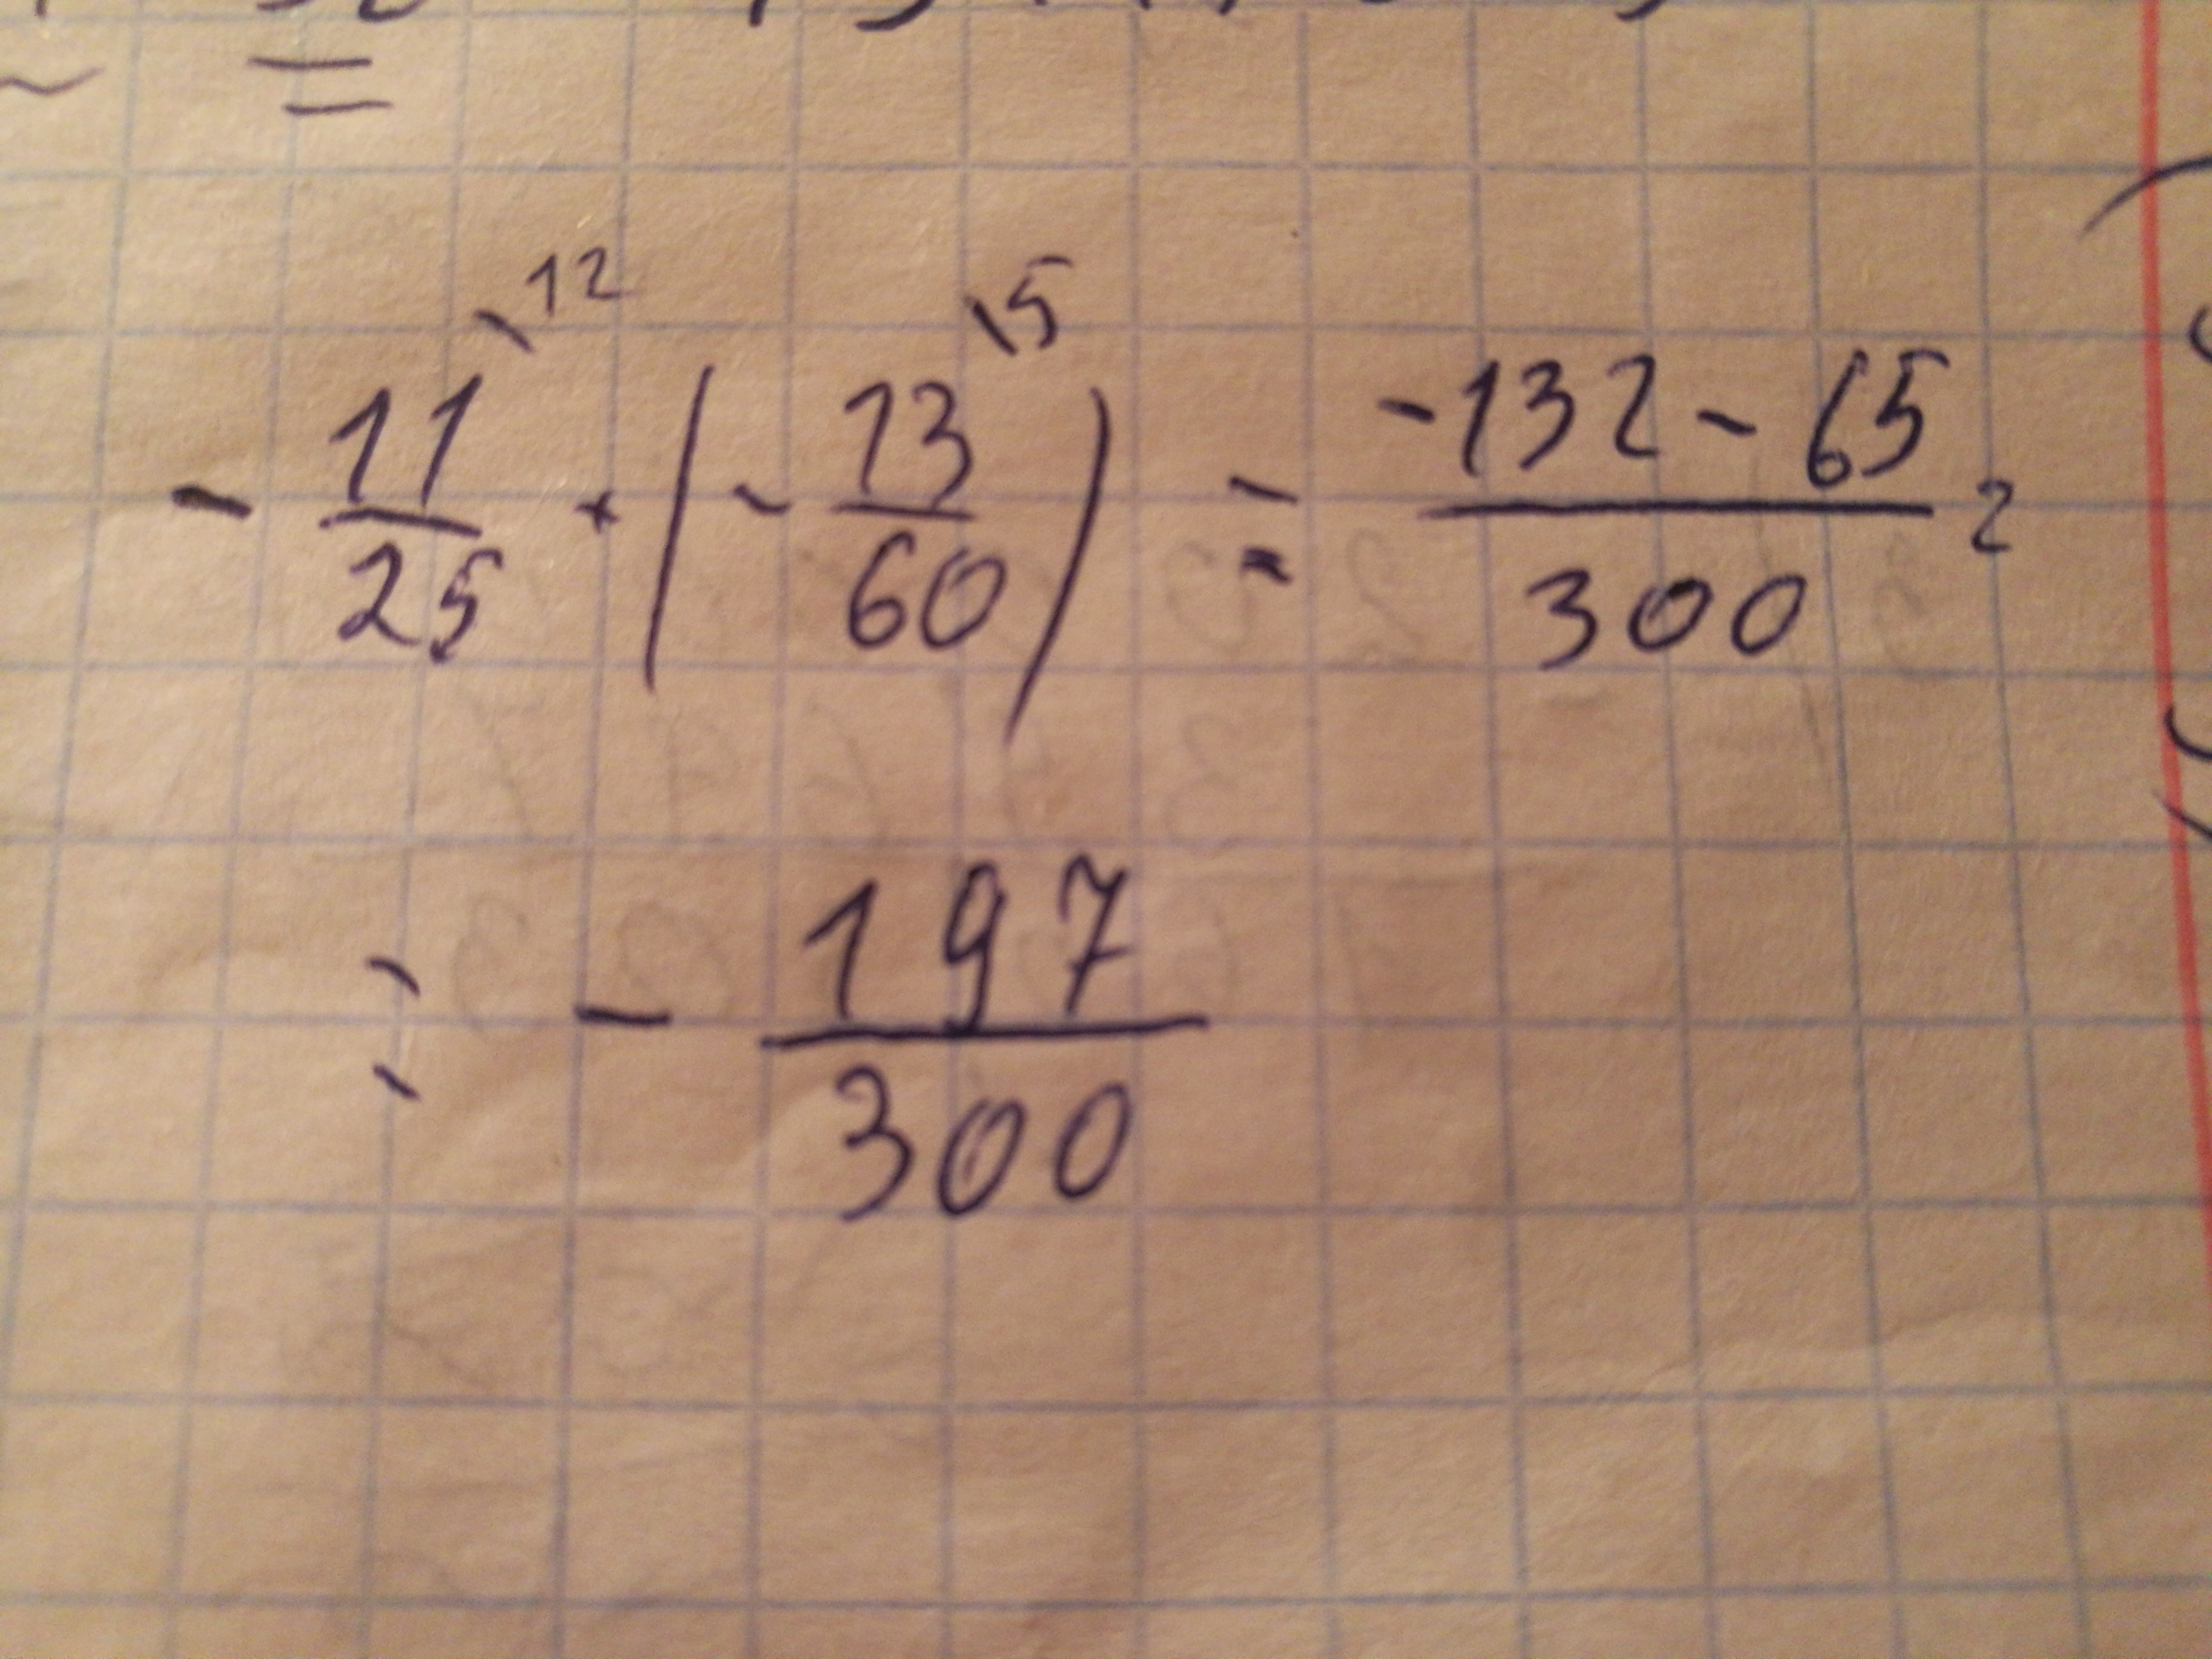 -11/25 \12 + (-13/60 \5) = (-132-65)/300 =
= -197/300